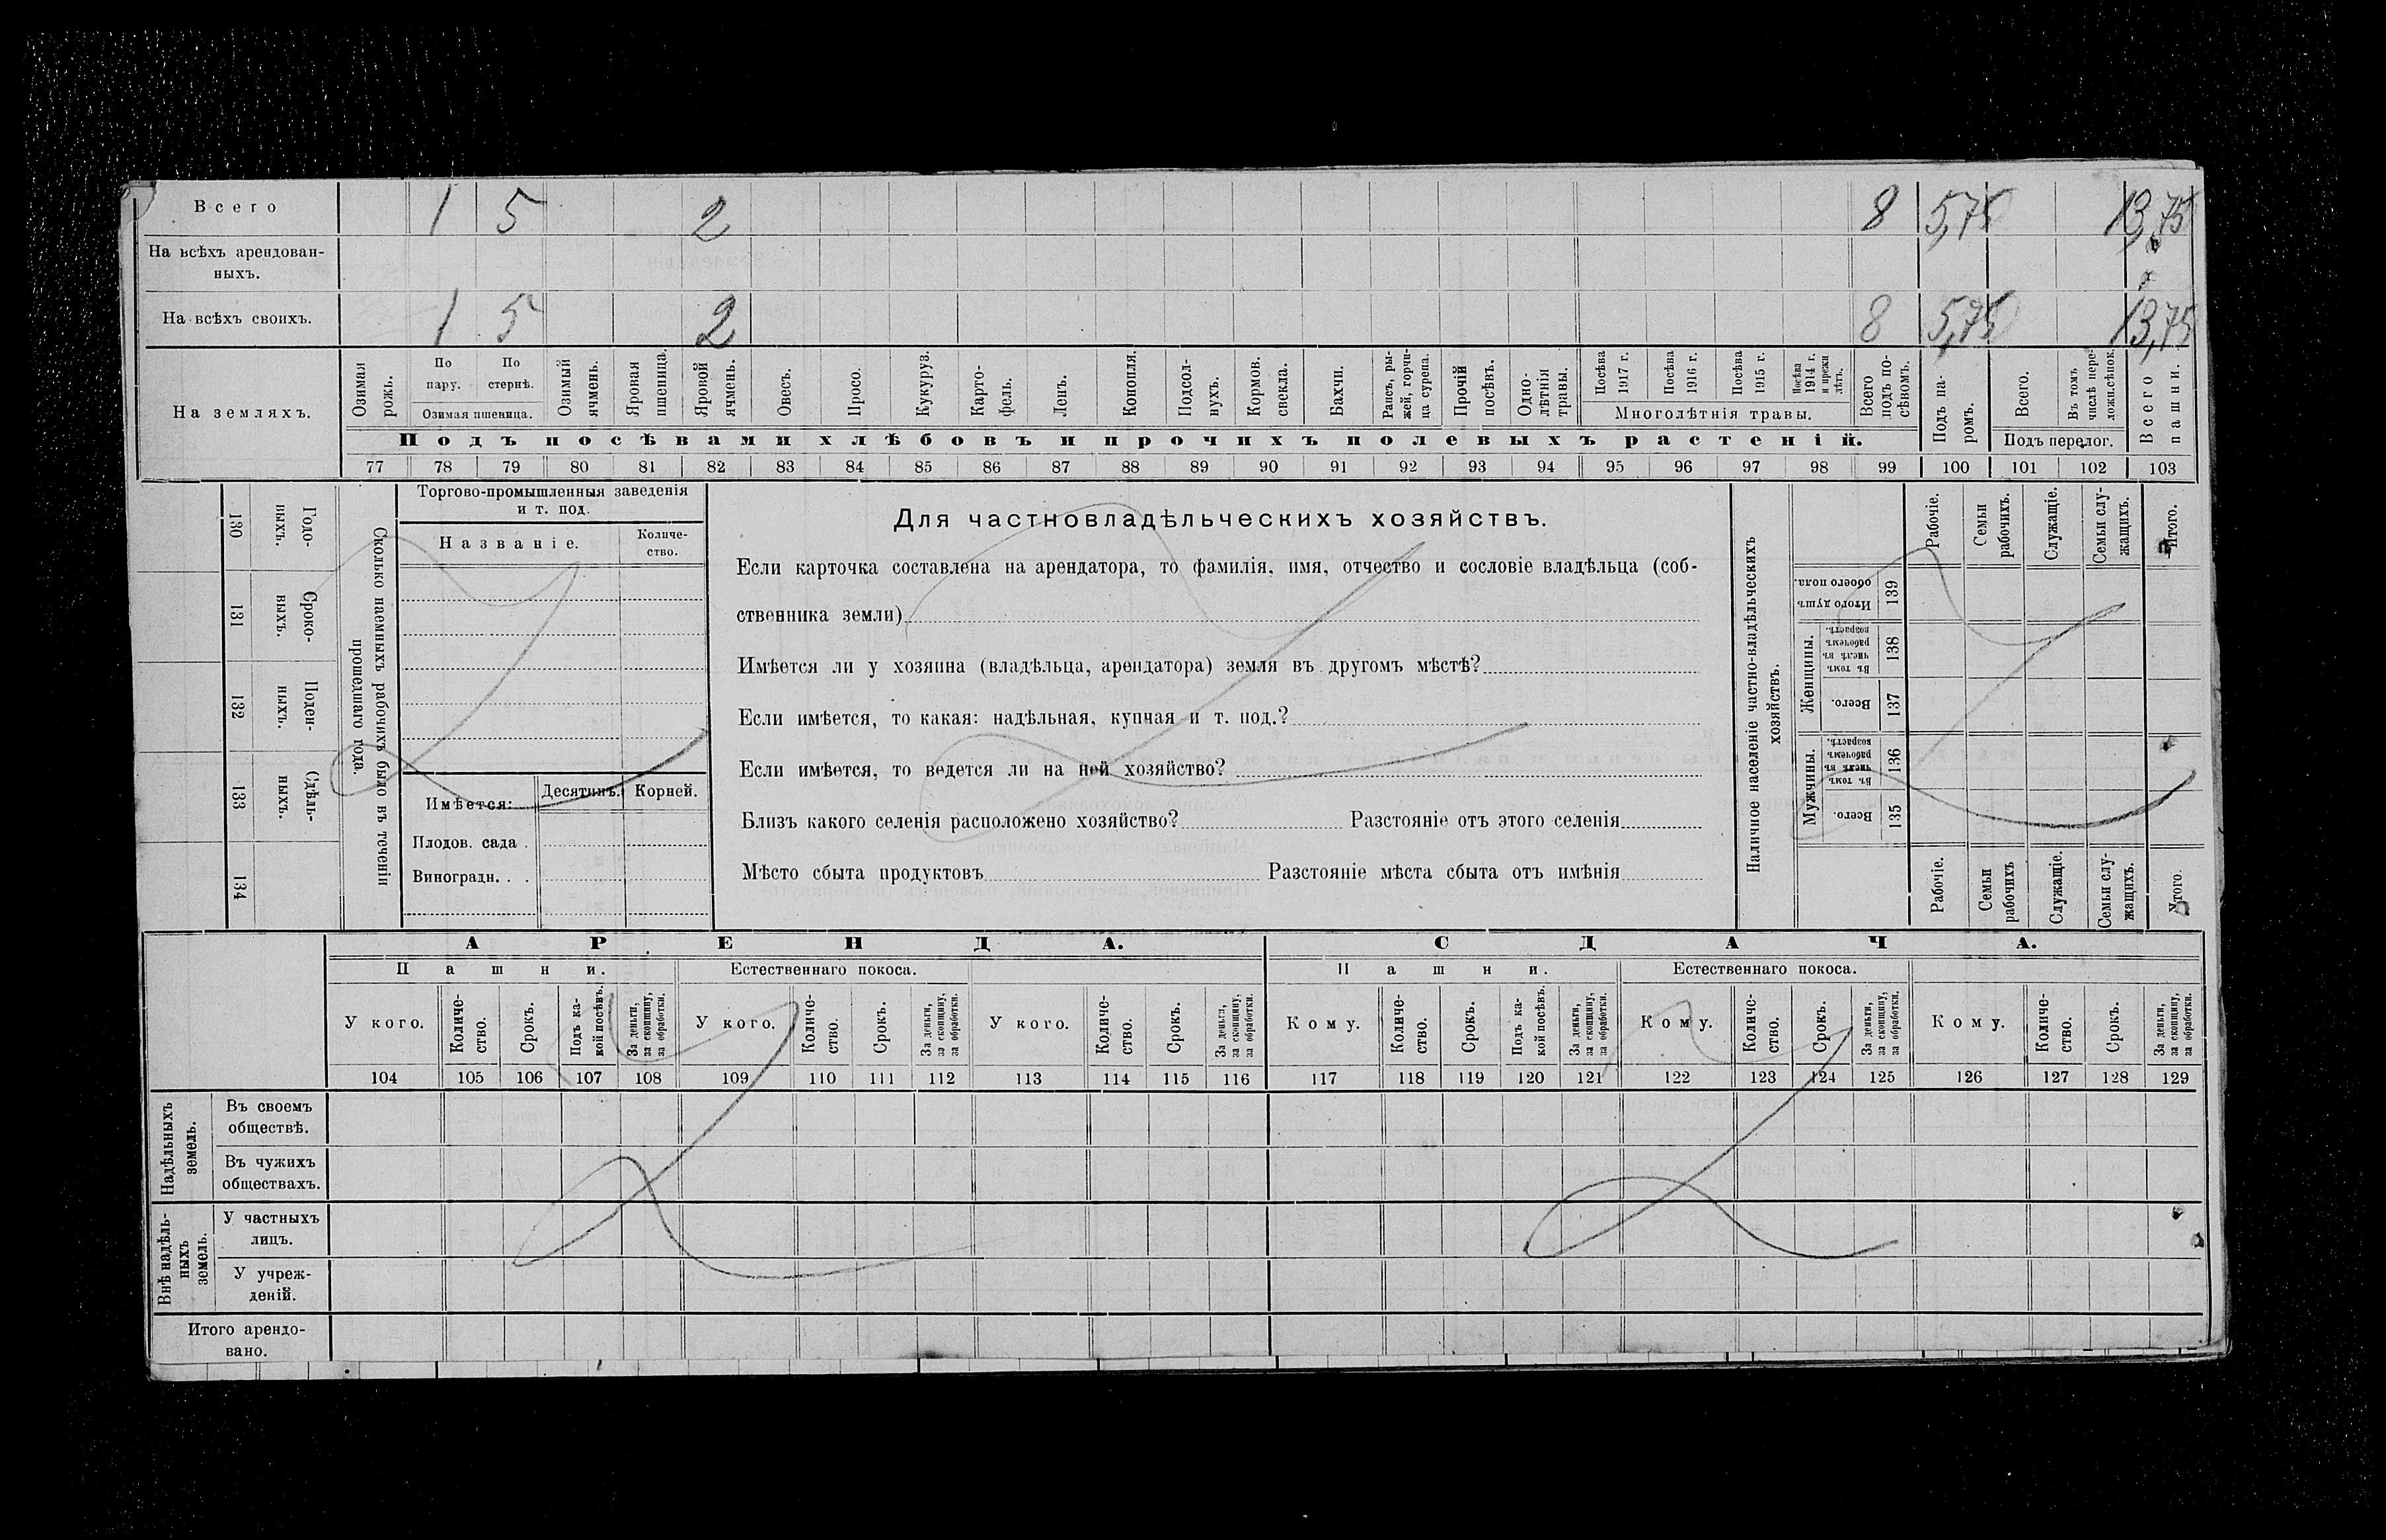 Всего 1 5 2 8 5,75 13,75
На всѣхъ арендован-
ныхъ.
На всѣхъ своихъ. 1 5 2 8 5,75 13,75
На земляхъ.
Озимая
рожь.
По
пару.
По
стернѣ.
Озимая пшеница.
Озимый
ячмень.
Яровая
пшеница.
Яровой
ячмень.
Овесъ.
Просо.
Кукуруз.
Карто-
фель.
Ленъ.
Конопля.
Подсол-
нухъ.
Кормов.
свекла.
Бахчи.
Рапсъ, ры-
жей, горчи-
ца сурепа.
Прочій
посѣвъ.
Одно-
лѣтнія
травы.
Посѣва
1917 г.
Посѣва
1916 г.
Посѣва
1915 г.
Посѣва
1914 г.
и прежн
лѣтъ.
Многолѣтнія травы.
Всего
подъ по-
сѣвомъ.
Подъ па-
ромъ.
Всего.
Въ томъ
числѣ пере-
ложн.сѣнок.
Подъ перелог.
Всего
пашни.
Подъ посѣвами хлѣбовъ и прочихъ полевыхъ растеній.
77 78 79 80 81 82 83 84 85 86 87 88 89 90 91 92 93 94 95 96 97 98 99 100 101 102 103
Сколько наемныхъ рабочихъ было въ теченіи
прошедшаго года.
Годо-
выхъ.
130
Сроко-
выхъ.
131
Поден-
ныхъ.
132
Сдѣль-
ныхъ.
133
134
Торгово-промышленныя заведенія
и т. под.
Названіе.
Количе-
ство.
Имѣется:
Десятинъ.
Корней.
Плодов. сада .
Виноградн. . .
Для частновладѣльческихъ хозяйствъ.
Если карточка составлена на арендатора, то фамилія, имя, отчество и сословіе владѣльца (соб-
ственника земли)
Имѣется ли у хозяина (владѣльца, арендатора) земля въ другомъ мѣстѣ?
Если имѣется, то какая: надѣльная, купчая и т. под.?
Если имѣется, то ведется ли на ней хозяйство?
Близъ какого селенія расположено хозяйство? Разстояніе отъ этого селенія
Мѣсто сбыта продуктовъ Разстояніе мѣста сбыта отъ имѣнія
Наличное населеніе частно-владѣльческихъ
хозяйствъ.
Рабочіе.
Семьи
рабочихъ.
Служащіе.
Семьи слу-
жащихъ.
Итого.
Итого душъ
обоего пола.
139
Женщины.
Въ томъ
числѣ въ
рабочемъ
возрастѣ.
138
Всего.
137
Мужчины.
Въ томъ
числѣ въ
рабочемъ
возрастѣ.
136
Всего.
135
Рабочіе.
Семьи
рабочихъ
Служащіе.
Семьи слу-
жащихъ.
Итого.
АРЕНДА. СДАЧА.
Пашни. Естественнаго покоса. Пашни. Естественнаго покоса.
У кого.
Количе-
ство.
Срокъ.
Подъ ка-
кой посѣвъ.
За деньги,
за скопщину,
за обработки.
У кого.
Количе-
ство.
Срокъ.
За деньги,
за скопщину,
за обработки.
У кого.
Количе-
ство.
Срокъ.
За деньги,
за скопщину,
за обработки.
Кому.
Количе-
ство.
Срокъ.
Подъ ка-
кой посѣвъ.
За деньги,
за скопщину,
за обработки.
Кому.
Количе-
ство.
Срокъ.
За деньги,
за скопщину,
за обработки.
Кому.
Количе-
ство.
Срокъ.
За деньги,
за скопщину,
за обработки.
104 105 106 107 108 109 110 111 112 113 114 115 116 117 118 119 120 121 122 123 124 125 126 127 128 129
Надѣльныхъ
земель.
Въ своемъ
обществѣ.
Въ чужихъ
обществахъ.
Внѣ надѣль-
ныхъ
земель.
У частныхъ
лицъ.
У учреж-
деній.
Итого арендо-
вано.